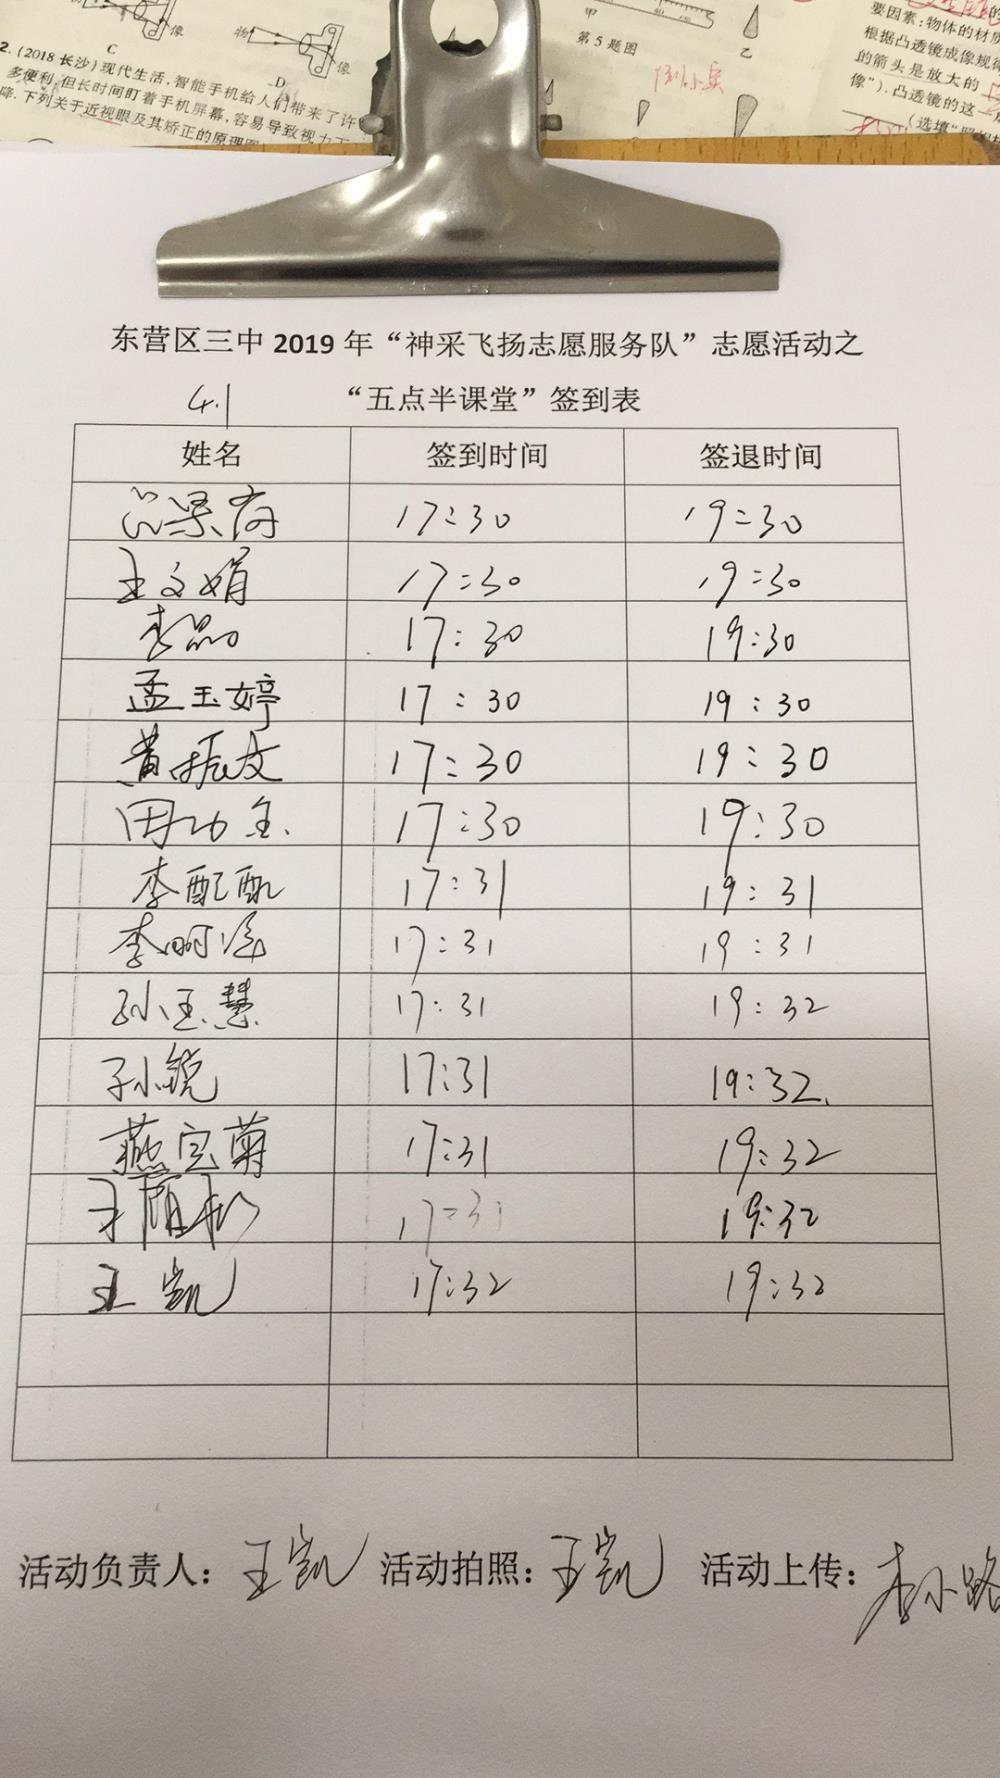 C
像
物
像
D
2.(2018长沙)现代生活,智能手机给人们带来了许
多便利,但长时间盯着手机屏幕,容易导致视力下
降.下列关于近视眼及其矫正的原理图
甲
第5题图
乙
要因素:物体的材质
根据凸透镜成像规律
的箭头是放大的
像").凸透镜的这一
(选填"照相
东营区三中2019年“神采飞扬志愿服务队”志愿活动之
4.1 “五点半课堂”签到表
姓名 签到时间 签退时间
17:30 19:30
王文娟 17:30 19:30
李磊 17:30 19:30
孟玉婷 17:30 19:30
黄振文 17:30 19:30
田功金 17:30 19:30
李配配 17:31 19:31
李明泽 17:31 19:31
孙玉慧 17:31 19:32
孙小锐 17:31 19:32
燕宝菊 17:31 19:32
17:31 19:32
王凯 17:32 19:32
活动负责人:王凯 活动拍照:王凯 活动上传:李小路